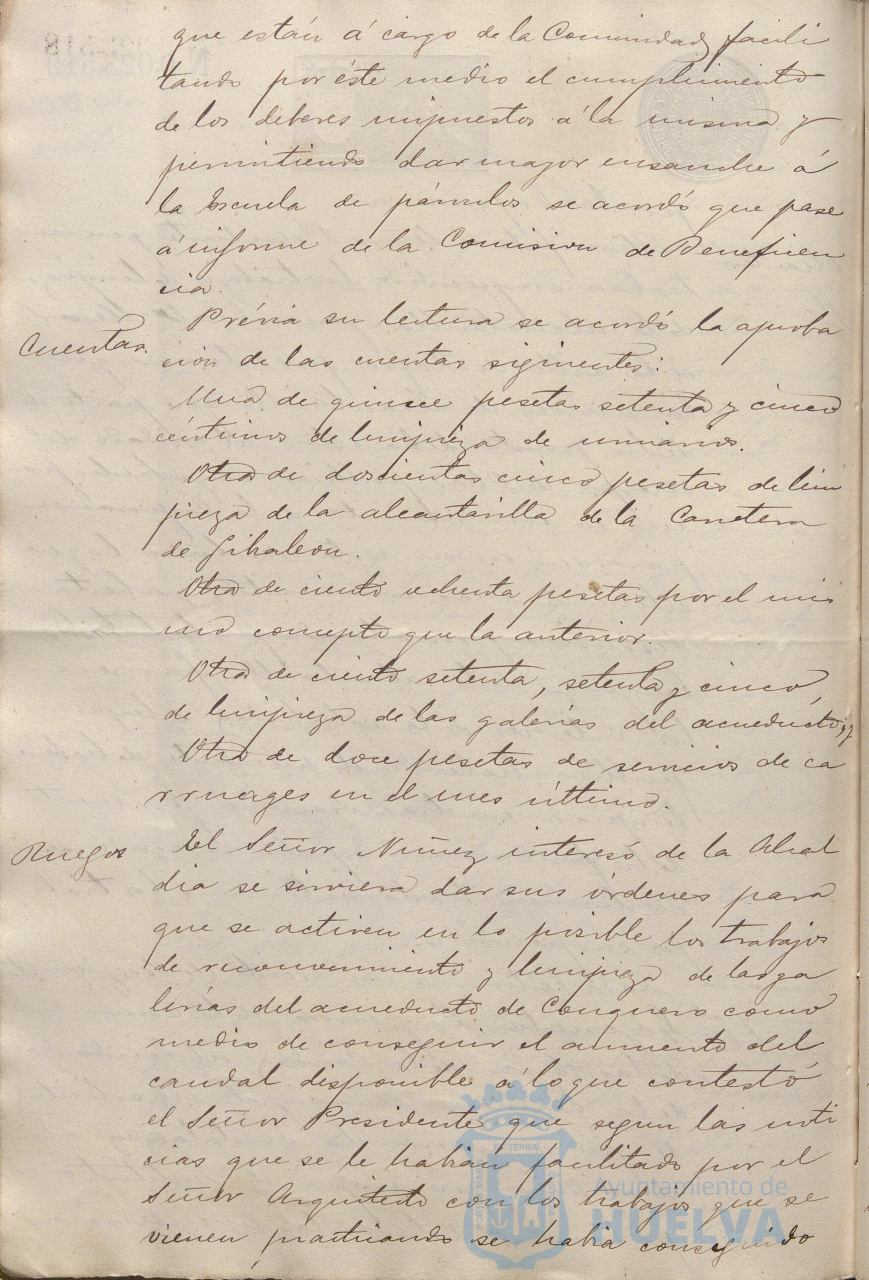 que están á cargo de la Comunidad, facili
tando por éste medio el cumplimiento
de los deberes impuestos á la misma y
permitiendo dar mayor ensanche á
la Escuela de párvulos se acordó que pase
á informe de la Comision de Beneficen
cia.
Prévia su lectura se acordó la aproba
Cuentas.
cion de las cuentas siguientes:
Una de quince pesetas setenta y cinco
céntimos de limpieza de urinarios.
Otra de doscientas cinco pesetas de lim
pieza de la alcantarilla de la Carretera
de Gibraleon.
Otra de ciento ochenta pesetas por el mis
mo concepto que la anterior.
Otra de ciento setenta, setenta y cinco,
de limpieza de las galerías del acueducto, y
Otra de doce pesetas de servicios de ca
rruages en el mes último.
Ruegos
El Señor Nuñez interesó de la Alcal
dia se sirviera dar sus órdenes para
que se activen en lo posible los trabajos
de reconocimiento y limpieza de las ga
lerías del acueducto de Conquero como
medio de conseguir el aumento del
caudal disponible á lo que contestó
el Señor Presidente que segun las noti
cias que se le habian facilitado por el
Señor Arquitecto con los trabajos que se
vienen practicando se habia conseguido
Ayuntamiento de
HUELVA